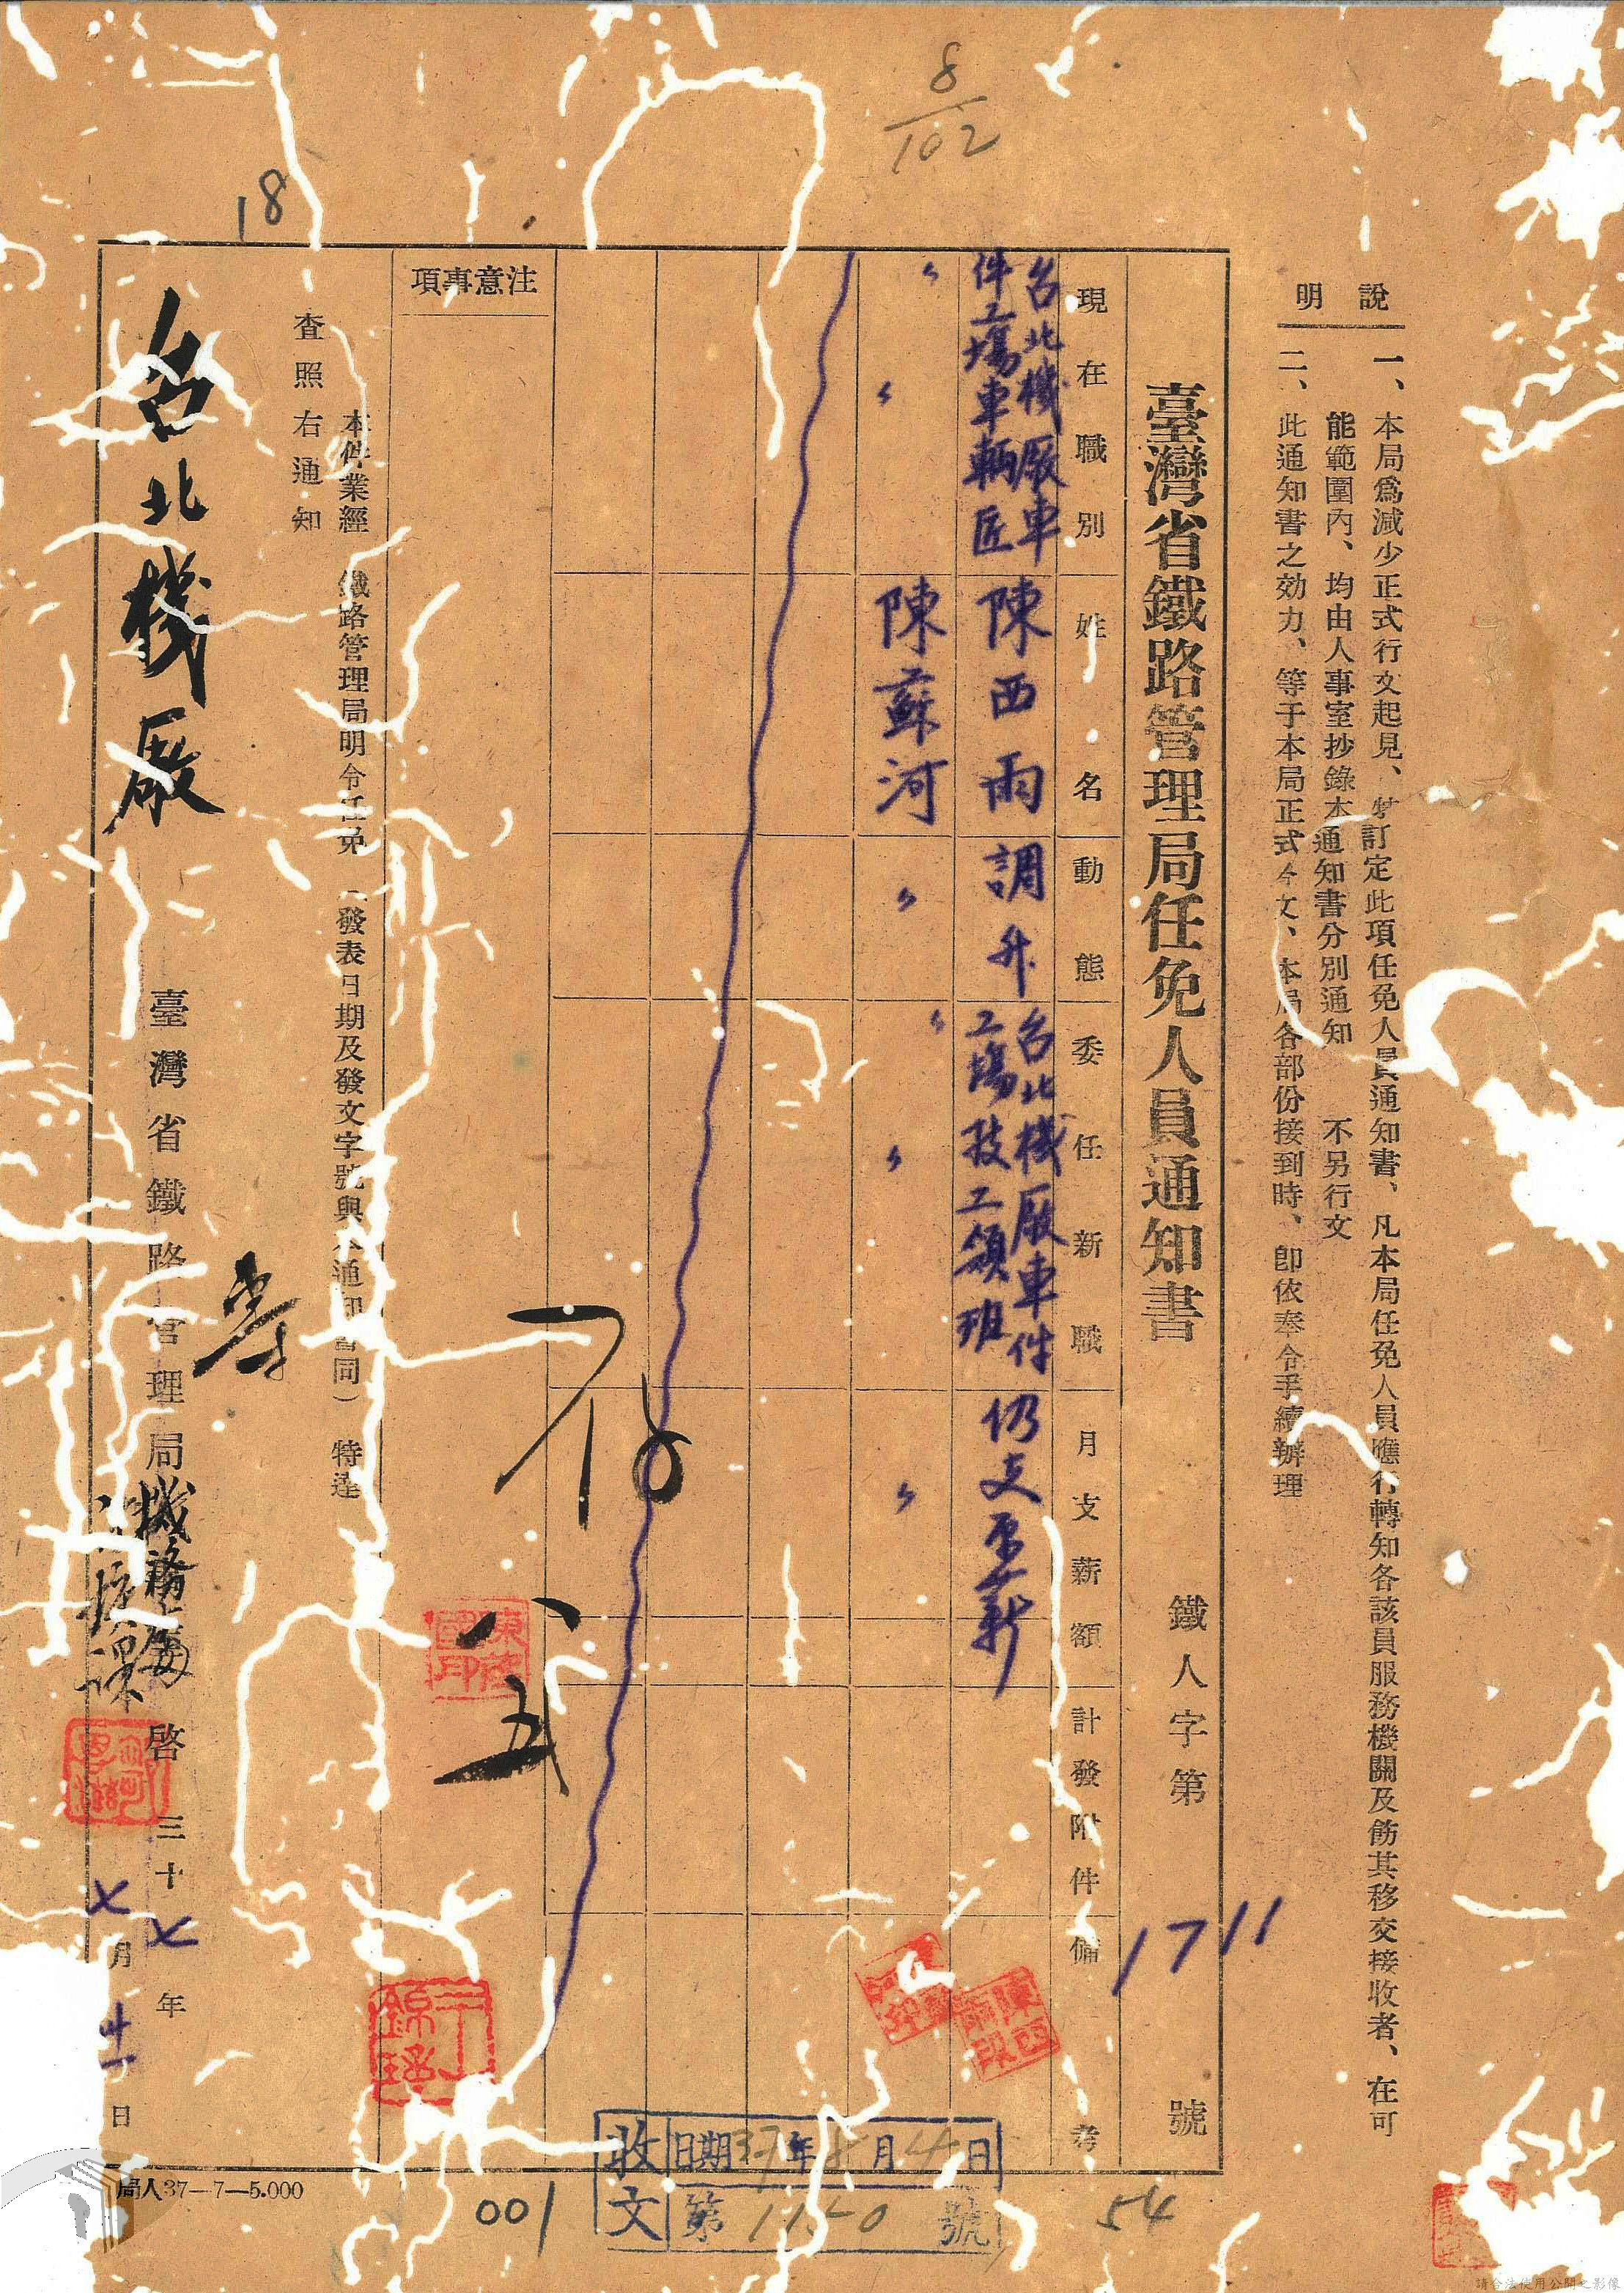 8/102
18
說明
一、本局為減少正式行文起見、特訂定此項任免人員通知書、凡本局任免人員應行轉知各該員服務機關及飭其移交接收者、在可
能範圍內、均由人事室抄錄本通知書分別通知 不另行文
二、此通知書之効力、等于本局正式令文、本局各部份接到時、卽依奉令手續辦理
臺灣省鐵路管理局任免人員通知書
鐵人字第1711號
現在職別 姓名 動態 委任新職 月支薪額 計發附件 備考
台北機厰車件工場車輛匠 陳西雨 調升 台北機厰車件工場技工領班 仍支原薪
〃 〃 陳蘇河 〃 〃 〃 〃
注意事項
八 五
本件業經 鐵路管理局明令任免 發表日期及發文字號與 通知書同) 特達
查照右通知
台北機厰
臺灣省鐵路管理局機務 啓 三十七年
七月廿 日
局人37—7—5.000
001
收文
日期37年8月4日
第 號
54
請合法使用公開之影像